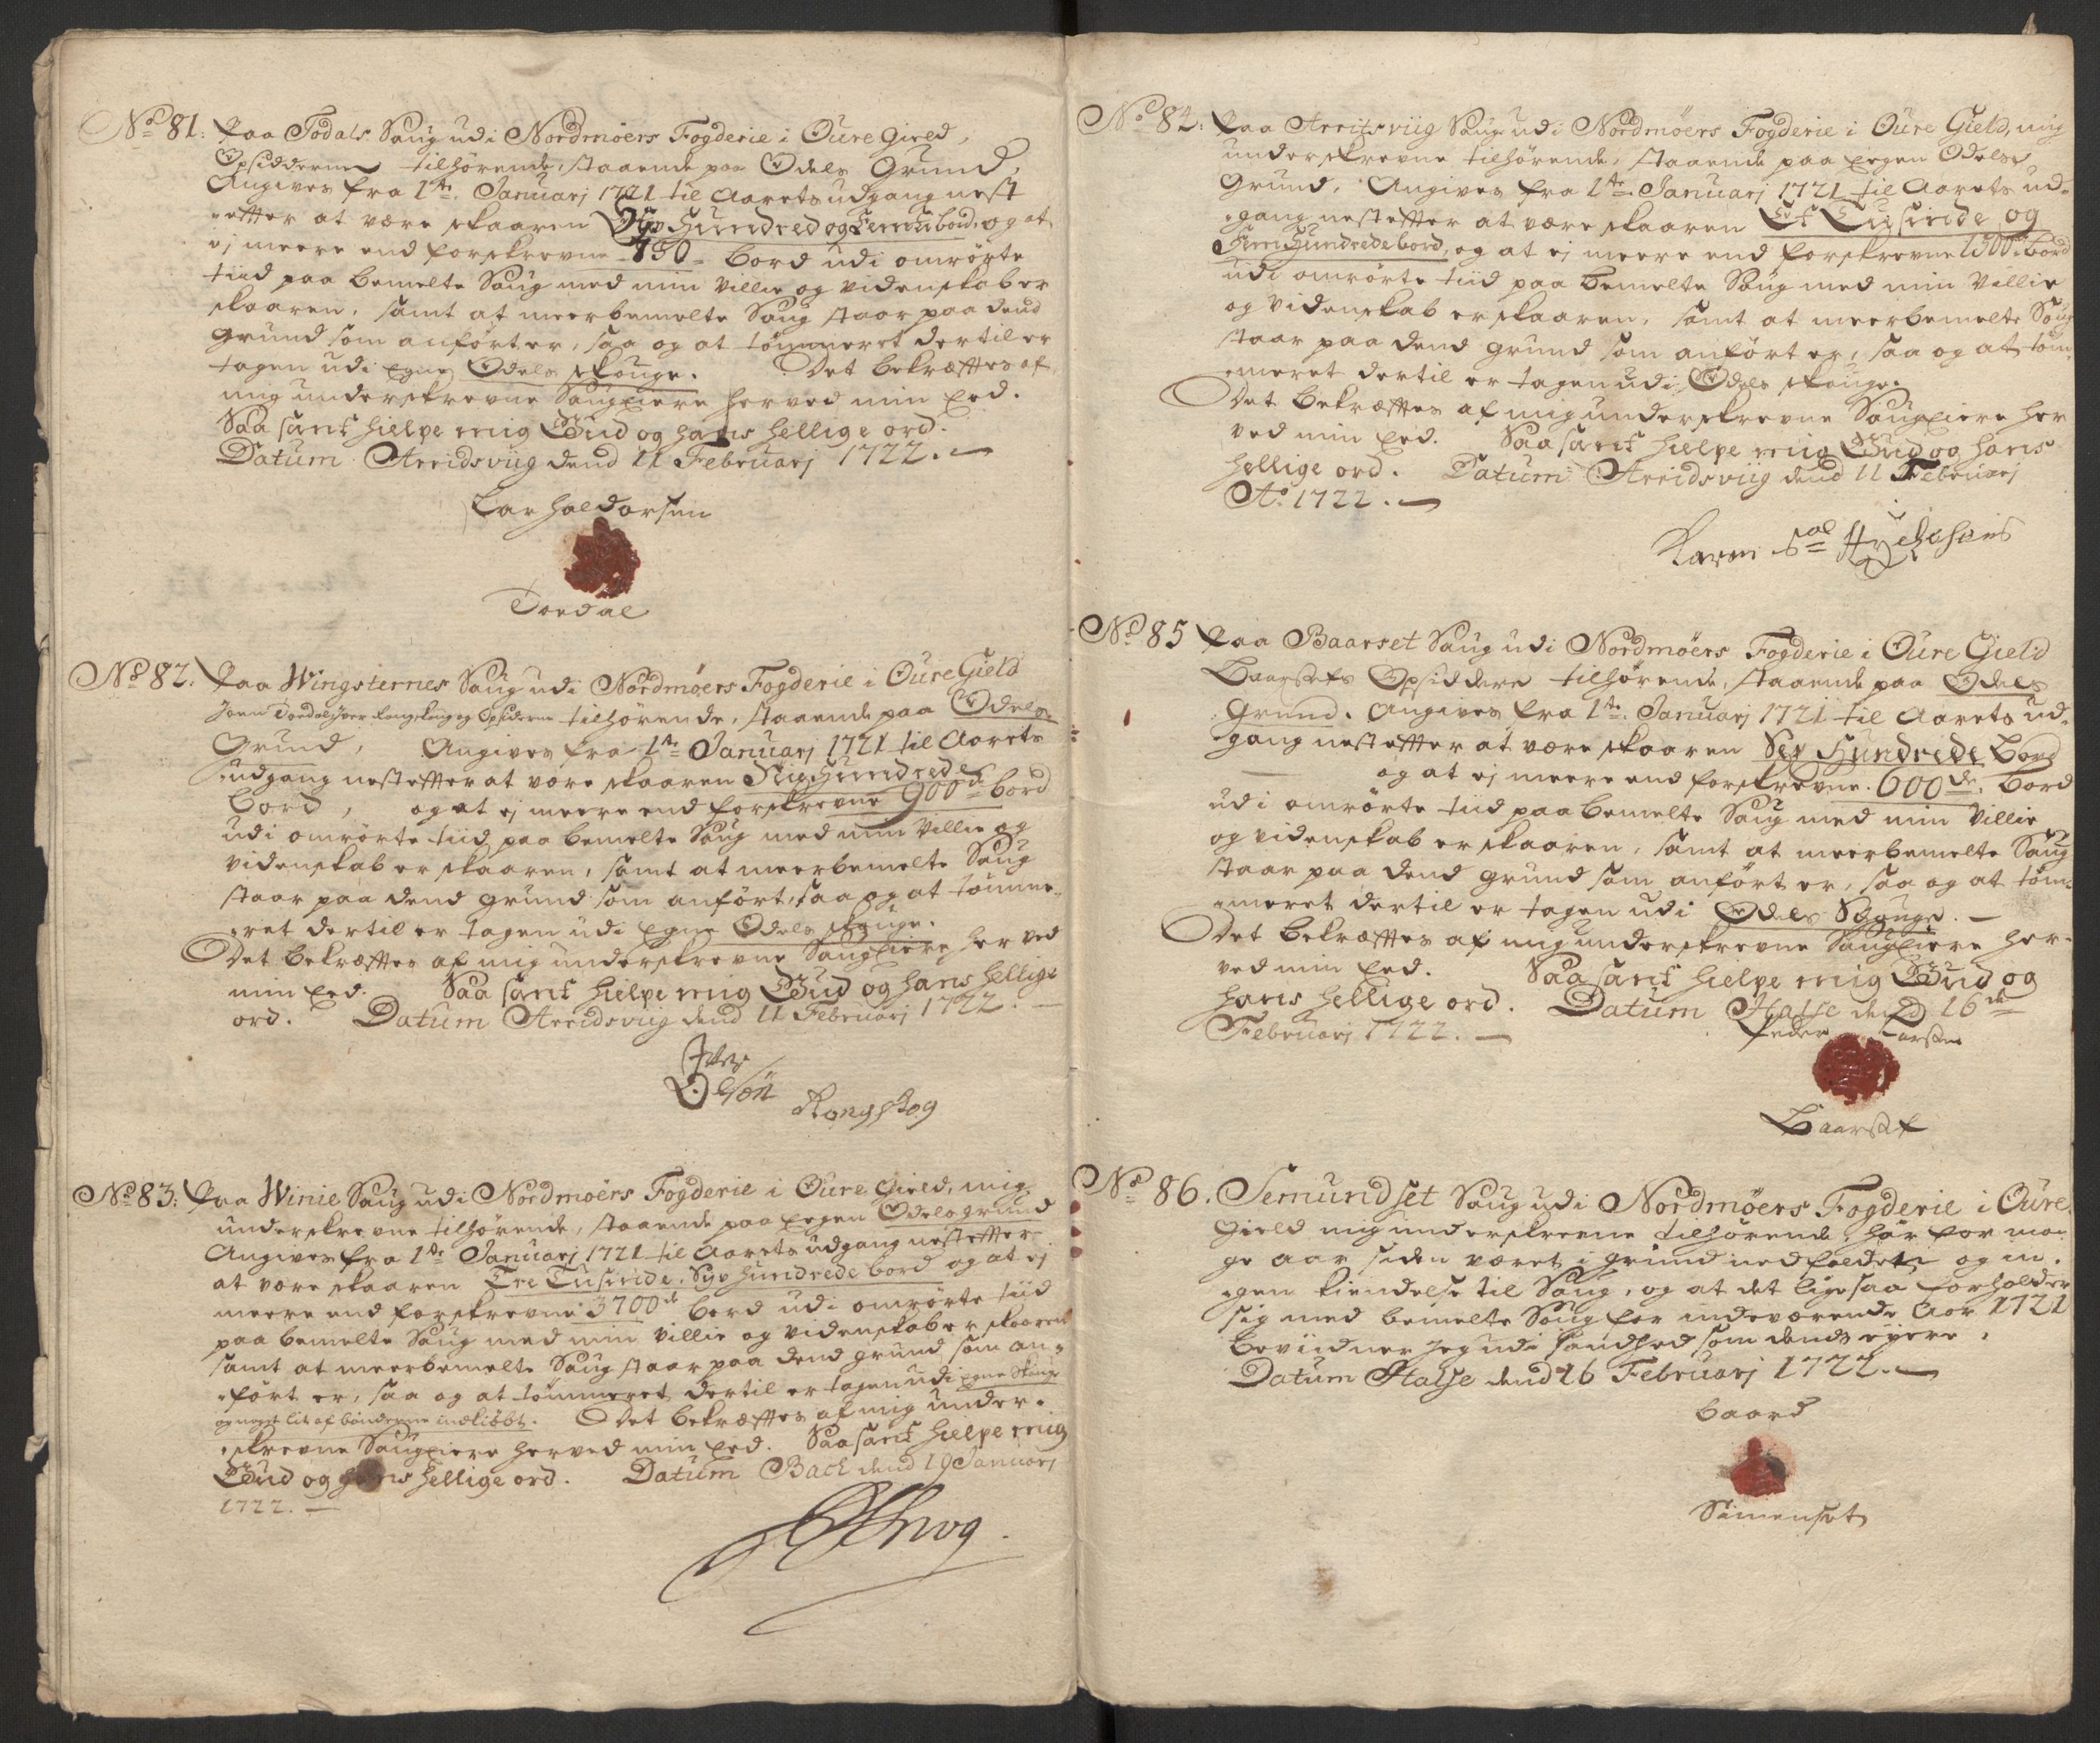 No 81. Paa Todals Saug udi Nordmøers Fogderie i Øure Gield,
Opsidderne tilhørende, staaende paa Odels Grund,
Angives fra 1te Januarj 1721 til Aarets udgang nest
efter at være skaaren Syv Hundred og Femti bord, og at
ej meere end forskrevne 750 bord udi omrørte
tiid paa bemelte Saug med min Villie og Videnskab er
skaaren, samt at meerbemelte Saug staar paa dend
grund som anført er, saa og at tømmeret dertil er
tagen udi egne Odels skouge. Det bekræfftes af
mig underskrevne Saugeiere herved min Eed.
Saa sant hielpe mig Gud og hans hellige ord.
Datum Arridsviig dend 11 Februarj 1722. —
Lar haldorsen
Tordal
No 82. Paa Wingsternes Saug udi Nordmøers Fogderie i Øure Gield
Joen Tordal Iver Rangskog og Opsiderne tilhørende, staaende paa Odels
Grund, Angives fra 1te Januarj 1721 til Aarets
udgang nest effter at være skaaren Nie Hundrede
bord, og at ej meere end forskrevne 900de bord
udi omrørte tiid paa bemelte Saug med min Villie og
Videnskab er skaaren, samt at meerbemelte Saug
staar paa dend grund som anført, saa og at tømme-
eret dertil er tagen udi Egne Odels skouge.
Det bekræfftes af mig underskrevne Saugeiere her ved
min Eed. Saa sant hielpe mig Gud og hans hellige
ord. Datum Arridsviig dend 11 Februarj 1722. —
Iver
Olsøn Rangskog
No 83: Paa Winie Saug udi Nordmøers Fogderie i Øure Gield, mig
underskrevne tilhørende, staaende paa Eegen Odels grund
Angives fra 1de Januarj 1721 til Aarets udgang nest effter
at være skaaren Tre Tusinde, Syv hundrede bord og at ej
meere end forskrevne 3700de bord udi omrørte tiid
paa bemelte Saug med min Villie og Videnskab er skaaren
samt at meerbemelte Saug staar paa dend grund som an-
ført er, saa og at tømmeret dertil er tagen udi Egne Skouge
og noget lit af bønderne indkiøbt. Det bekræfftes af mig under-
skrevne Saugeiere herved min Eed. Saa sant hielpe mig
Gud og hans hellige ord. Datum Back dend 19 Januarj
1722. —
No 84: Paa Arritsviig Saug udi Nordmøers Fogderie i Øure Gield, mig
underskrevne tilhørende, staaende paa Eegen Odels
Grund, Angives fra 1te Januarj 1721 til Aarets ud-
gang nest effter at være skaaren Et Tusinde og
Fem Hundrede bord, og at ej meere end forskrevne 1500de bord
udi omrørte tiid paa bemelte Saug med min Villie
og Videnskab er skaaren, samt at meerbemelte Saug
staar paa dend grund som anført er, saa og at tøm-
meret dertil er tagen udi Odels skouge.
Det bekræfftes af mig underskrevne Saugeiere her
ved min Eed. Saa sant hielpe mig Gud og hans
hellige ord. Datum Arridsviig dend 11 Februarj
Ao 1722. —
Karen Sal
No 85 Paa Baarset Saug udi Nordmøers Fogderie i Øure Gield
Baarsets Opsiddere tilhørende, staaende paa Odels
Grund. Angives fra 1te Januarj 1721 til Aarets ud-
gang nest effter at være skaaren Sex Hundrede Bord
og at ej meere end forskrevne 600de bord
udi omrørte tiid paa bemelte Saug med min Villie
og Videnskab er skaaren, samt at meerbemelte Saug
staar paa dend grund som anført er, saa og at tøm-
meret dertil er tagen udi Odels Skouge. —
Det bekræfftes af mig underskrevne Saugeiere her-
ved min Eed. Saa sant hielpe mig Gud og
hans hellige ord. Datum Halse dend 16de
Februarj 1722. —
Peder Larsen
Baarset
No 86. Semundset Saug udi Nordmøers Fogderie i Øure
Gield mig underskrevne tilhørende, har for man-
ge aar siden været i grund nedfaldet og in-
gen kiendelse til Saug, og at det ligesaa forholder
sig med bemelte Saug for indeværende Aar 1721
beviidner Jeg udi Sandhed som dends eyere.
Datum Halse dend 16 Februarj 1722. —
baard
Simenset